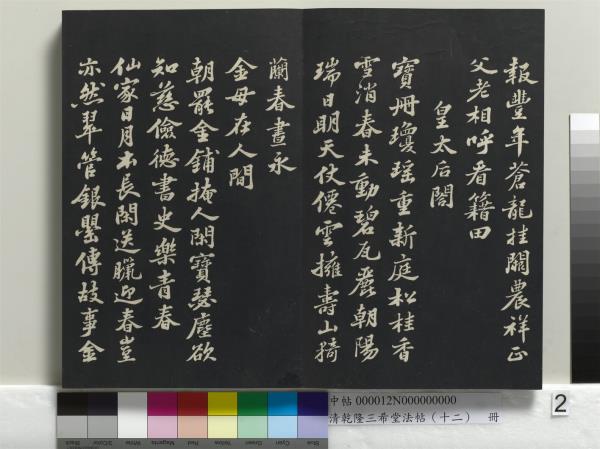 報豐年蒼龍挂闕農祥正
父老相呼看籍田
皇太后閤
寶冊瓊瑤重新庭松桂香
雪消春未動碧瓦麗朝陽
瑞日明天仗僊雲擁壽山猗
蘭春晝永
金母在人間
朝罷金鋪掩人閑寶瑟塵欲
知慈儉德書史樂青春
仙家日月本長閑送臘迎春豈
亦然翠管銀罌傳故事金
中帖 000012N000000000
清乾隆三希堂法帖（十二） 冊
2
Black
3/Color
White
Magenta
Red
Yellow
Green
Cyan
Blue